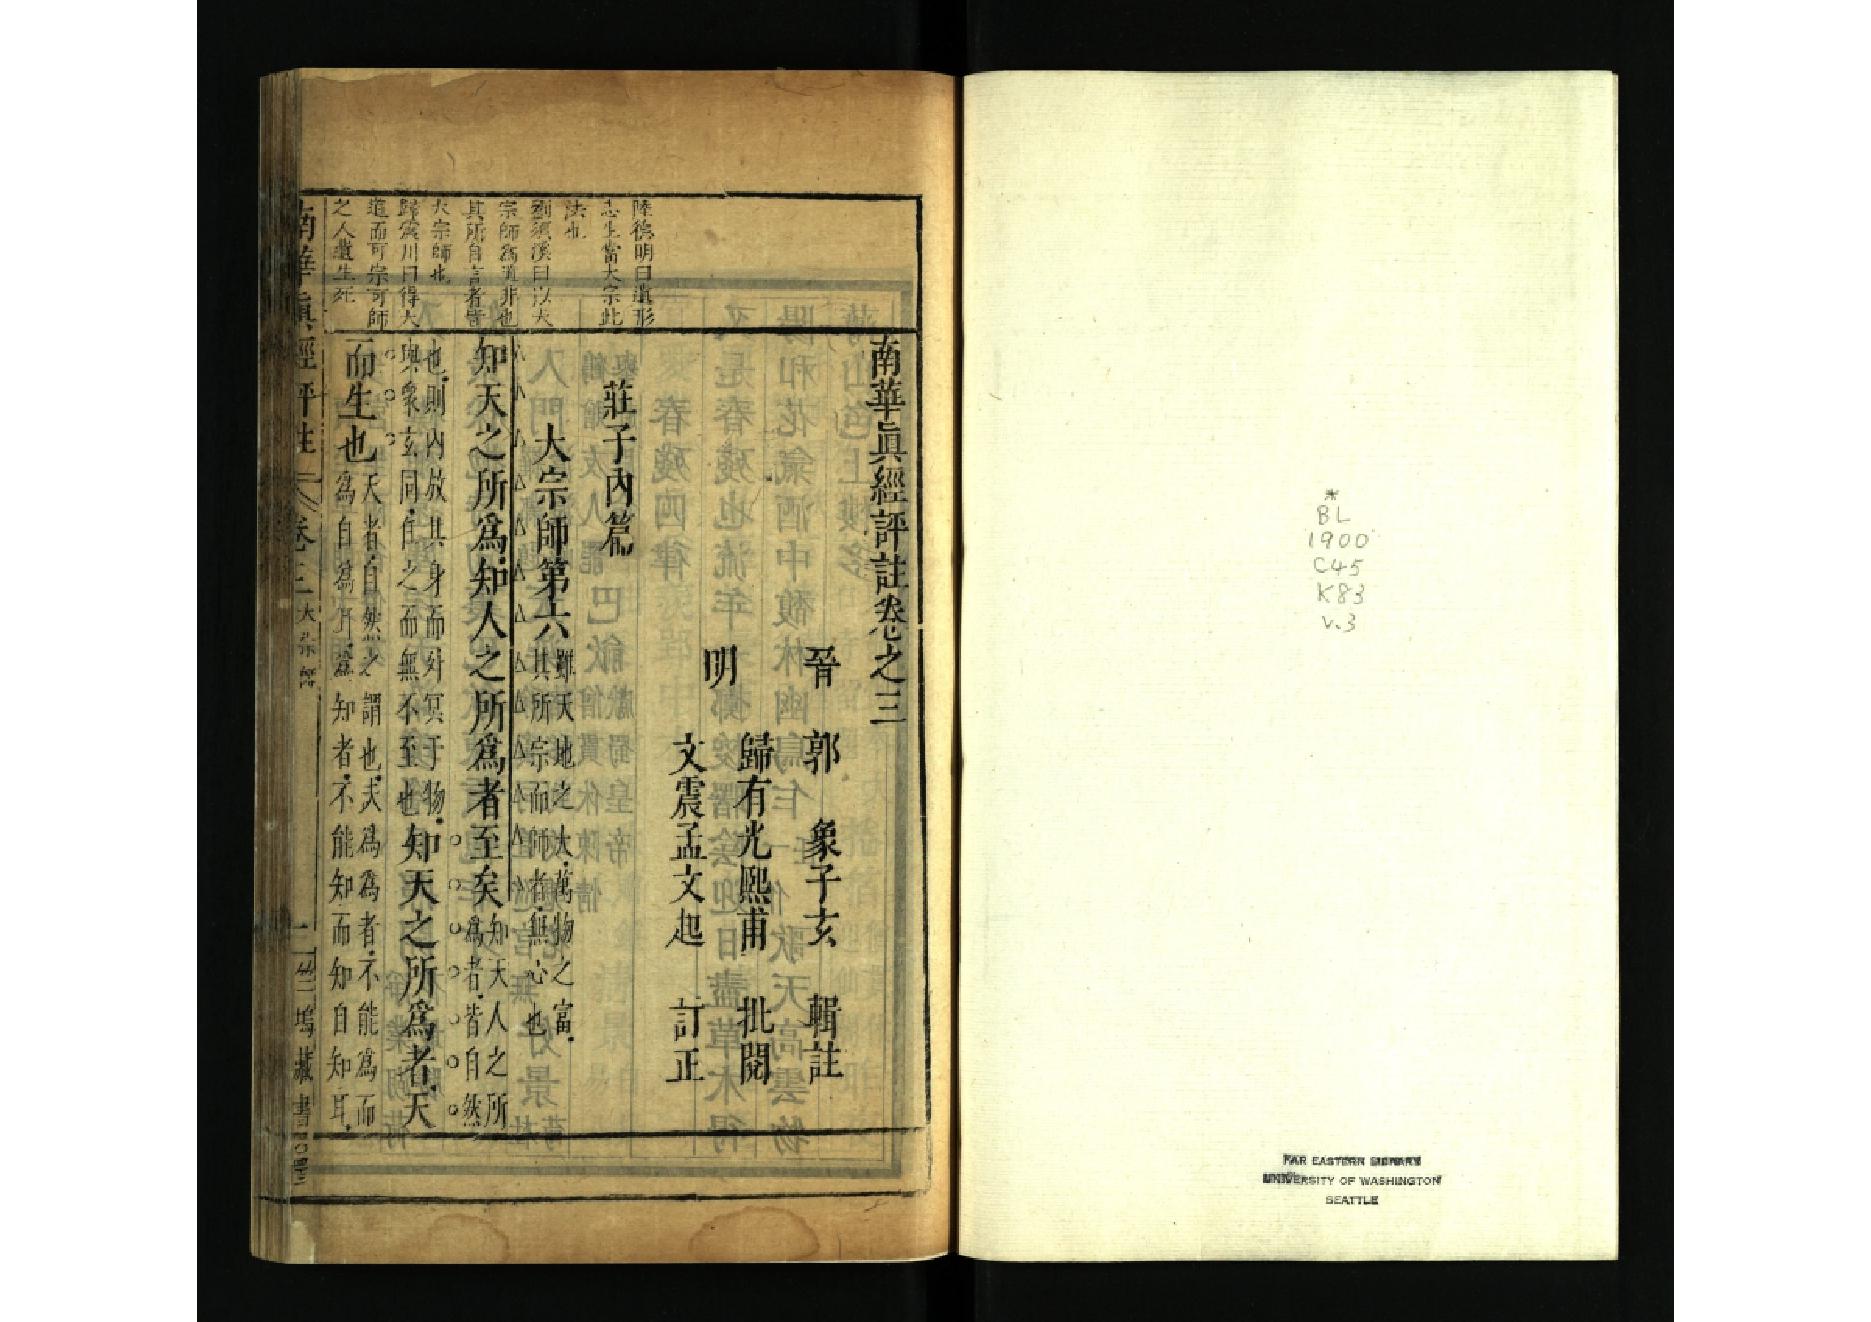 *
BL
1900
C45
K83
v.3
FAR EASTERN LIBRARY
UNIVERSITY OF WASHINGTON
SEATTLE
陸德明曰遺形
忘生當大宗此
法也
劉須溪曰以大
宗師爲道非也
其所自言者皆
大宗師也
歸震川曰得大
道而可宗可師
之人遺生死
南華眞經評註卷之三
晉 郭 象子玄 輯註
明 歸有光熙甫 批閱
文震孟文起 訂正
莊子內篇
大宗師第六 雖天地之大萬物之富
其所宗而師者無心也
知天之所爲知人之所爲者至矣 知天人之所
爲者皆自然
也則內放其身而外冥于物
與衆玄同任之而無不至也 知天之所爲者天
而生也 天者自然之謂也夫爲爲者不能爲而
爲自爲耳爲知者不能知而知自知耳
南華眞經評註 卷三 大宗師 一 竺塢藏書